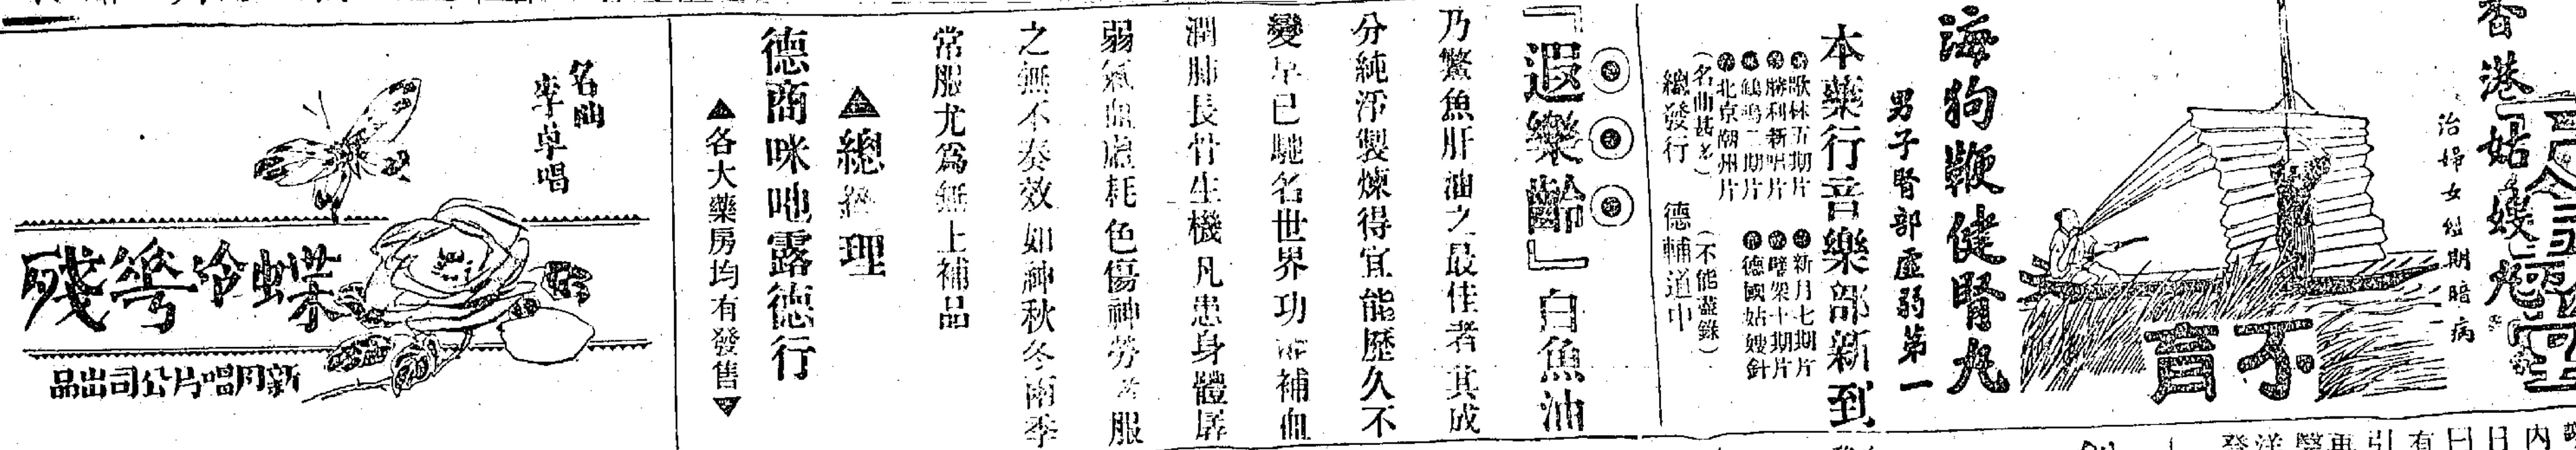 香港「姑嫂丸
治婦女經期暗病
不育
海狗鞭健腎丸
男子腎部虛弱第一
本藥行音樂部新到
歌林五期片
勝利新唱片
鶴鳴二期片
北京潮州片
新月七期片
璧架十期片
德國姑嫂針
(名曲甚多)(不能盡錄)
總發行 德輔道中
『遐樂齡』白魚油
乃鱉魚肝油之最佳者其成
分純淨製煉得宜能歷久不
變早已馳名世界功能補血
潤肺長骨生機凡患身體孱
弱氣血虛耗色傷神勞者服
之無不奏效如神秋冬兩季
常服尤爲無上補品
▲總經理
德商咪吔露德行
▲各大藥房均有發售▼
名曲
李卓唱
蝶冷花殘
新月唱片公司出品